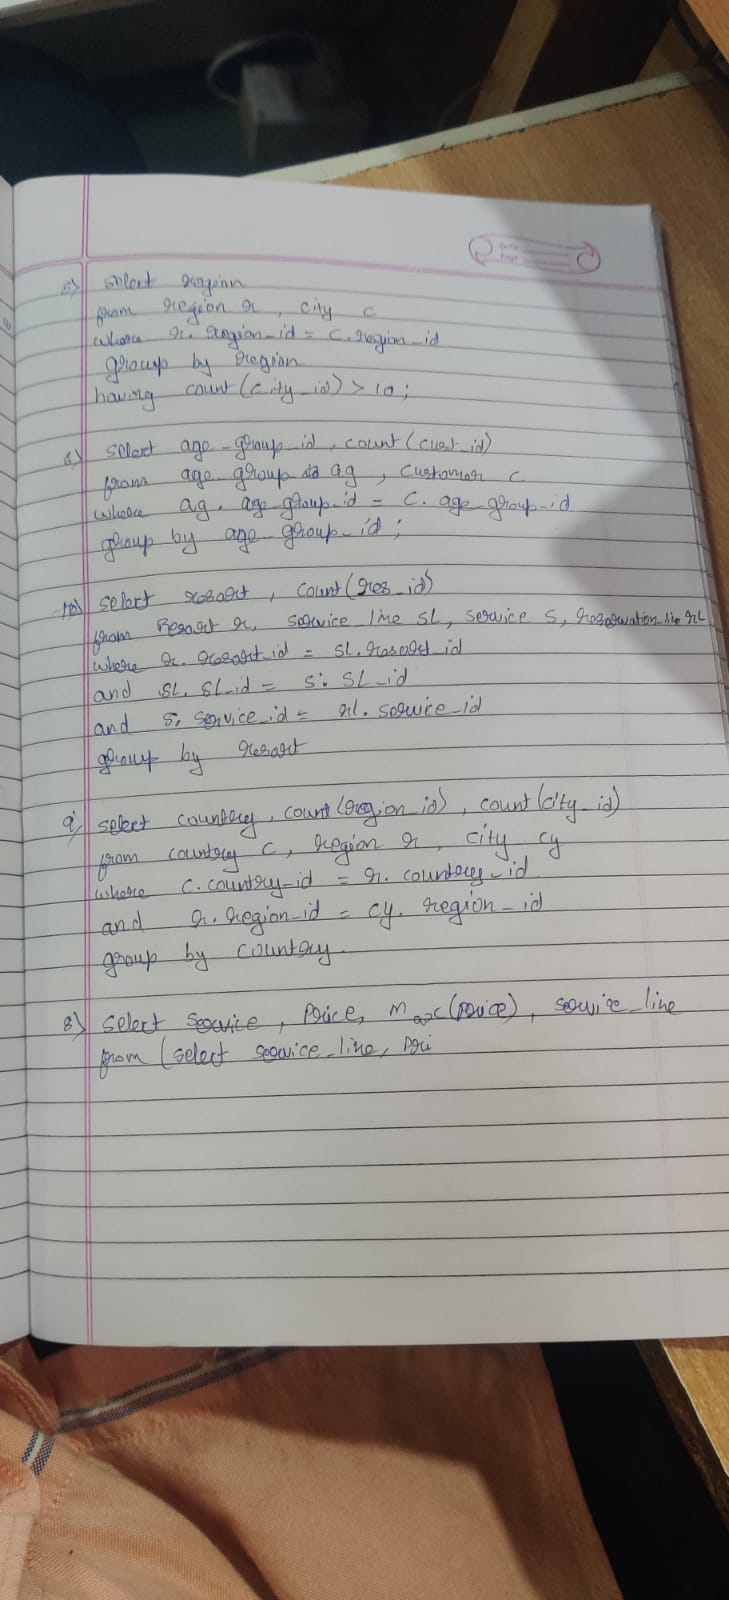 Date
Page
5) select region
from region r, city c
where r. region_id = c.region_id
group by region
having count(city_id) > 10;
6) select age-group_id, count(cust_id)
from age group ag, customer c
where ag. age-group_id = c. age group-id
group by age group_id;
10) select resort, count(res_id)
from Resort r, service line SL, service S, reservation_line rL
where r. resort_id = SL. resort_id
and SL. SL_id = S. SL_id
and S. service_id = rl. service_id
group by resort
9) select country, count(region_id), count(city_id)
from country c, region r, city cy
where c.country_id = r. country_id
and r. region_id = cy. region_id
group by country
8) select service, price, max(price), service_line
from (select service_line, pri